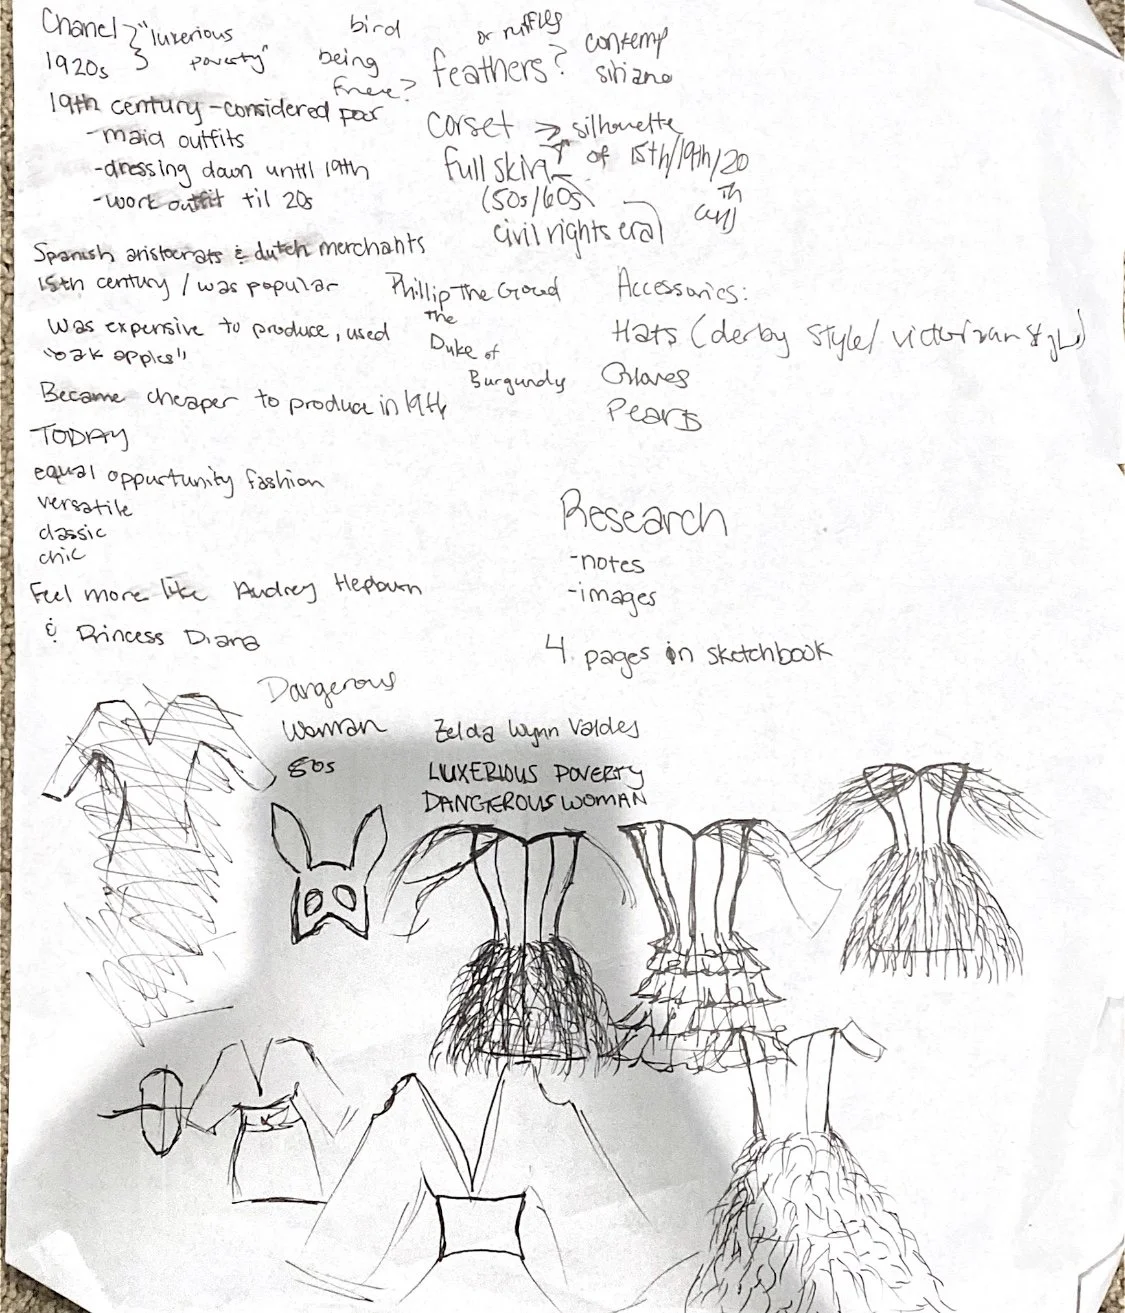 Chanel } "luxerious
1920s poverty"
bird
being
free?
or ruffles
feathers?
contemp
siriano
19th century - considered poor
- maid outfits
- dressing down until 19th
- work outfit til 20s
corset → silhouette
full skirt of 15th/19th/20
th
(50s/60s
civil rights era)
Spanish aristocrats & dutch merchants
15th century / was popular
Was expensive to produce, used
"oak apples"
Became cheaper to produce in 19th
Phillip The Good
The
Duke of
Burgundy
Accessories:
Hats (derby style/ victorian style)
Gloves
Pearls
TODAY
equal oppurtunity fashion
versatile
classic
chic
Feel more like Audrey Hepburn
& Princess Diana
Research
- notes
- images
4 pages in sketchbook
Dangerous
Woman
80s
Zelda Wynn Valdes
LUXERIOUS POVERTY
DANGEROUS WOMAN